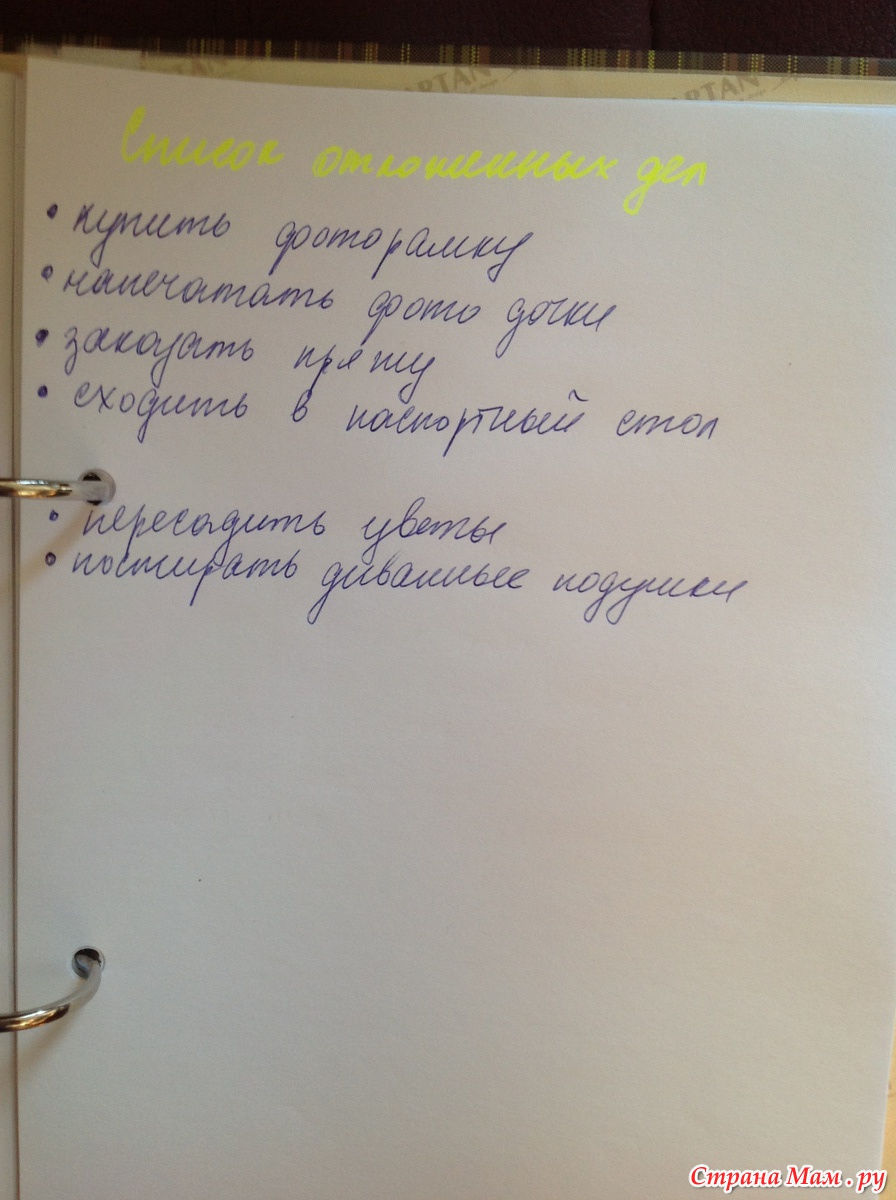 TARTAN
TARTAN
Список отложенных дел
• купить фоторамку
• напечатать фото дочки
• заказать пряжу
• сходить в паспортный стол
• пересадить цветы
• постирать диванные подушки
Страна Мам.ру